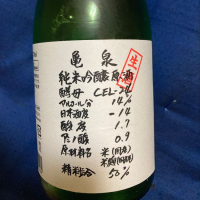 亀泉
生
純米吟醸原酒
酵母 CEL-24
アルコール分 14%
日本酒度 -14
酸度 1.7
アミノ酸 0.9
原材料名 米(国産)
米麹(国産)
精米歩合 50%